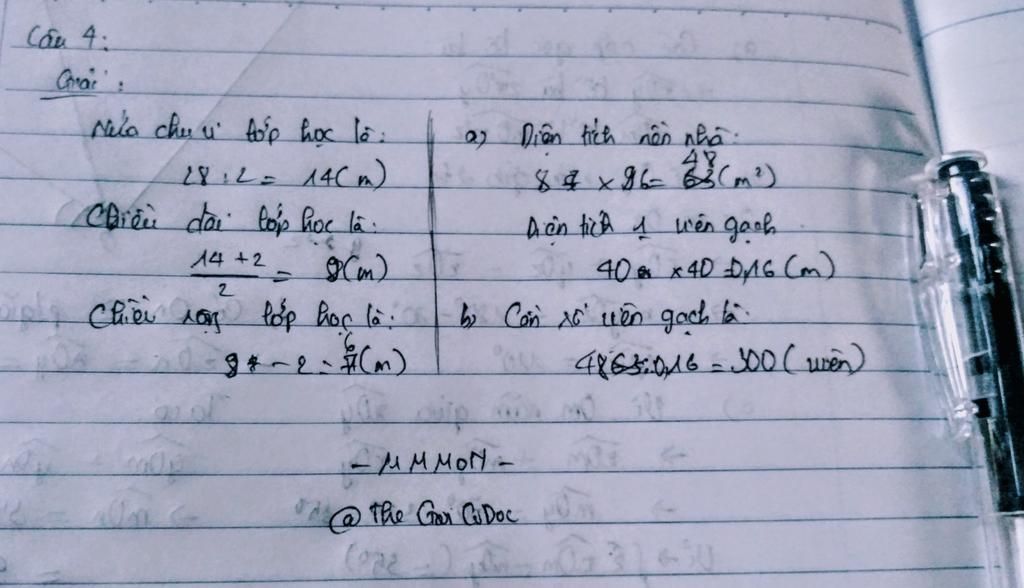 Câu 4:
Giải:
Nửa chu vi lớp học là:
28 : 2 = 14 (m)
Chiều dài lớp học là:
14 + 2
2
= 8 (m)
Chiều rộng lớp học là:
8 - 2 = 6 (m)
a) Diện tích nền nhà:
8 x 6 = 48 (m²)
Diện tích 1 viên gạch
40 x 40 = 0,16 (m)
b) Cần số viên gạch là:
48 : 0,16 = 300 (viên)
@ The Gai CuDoc